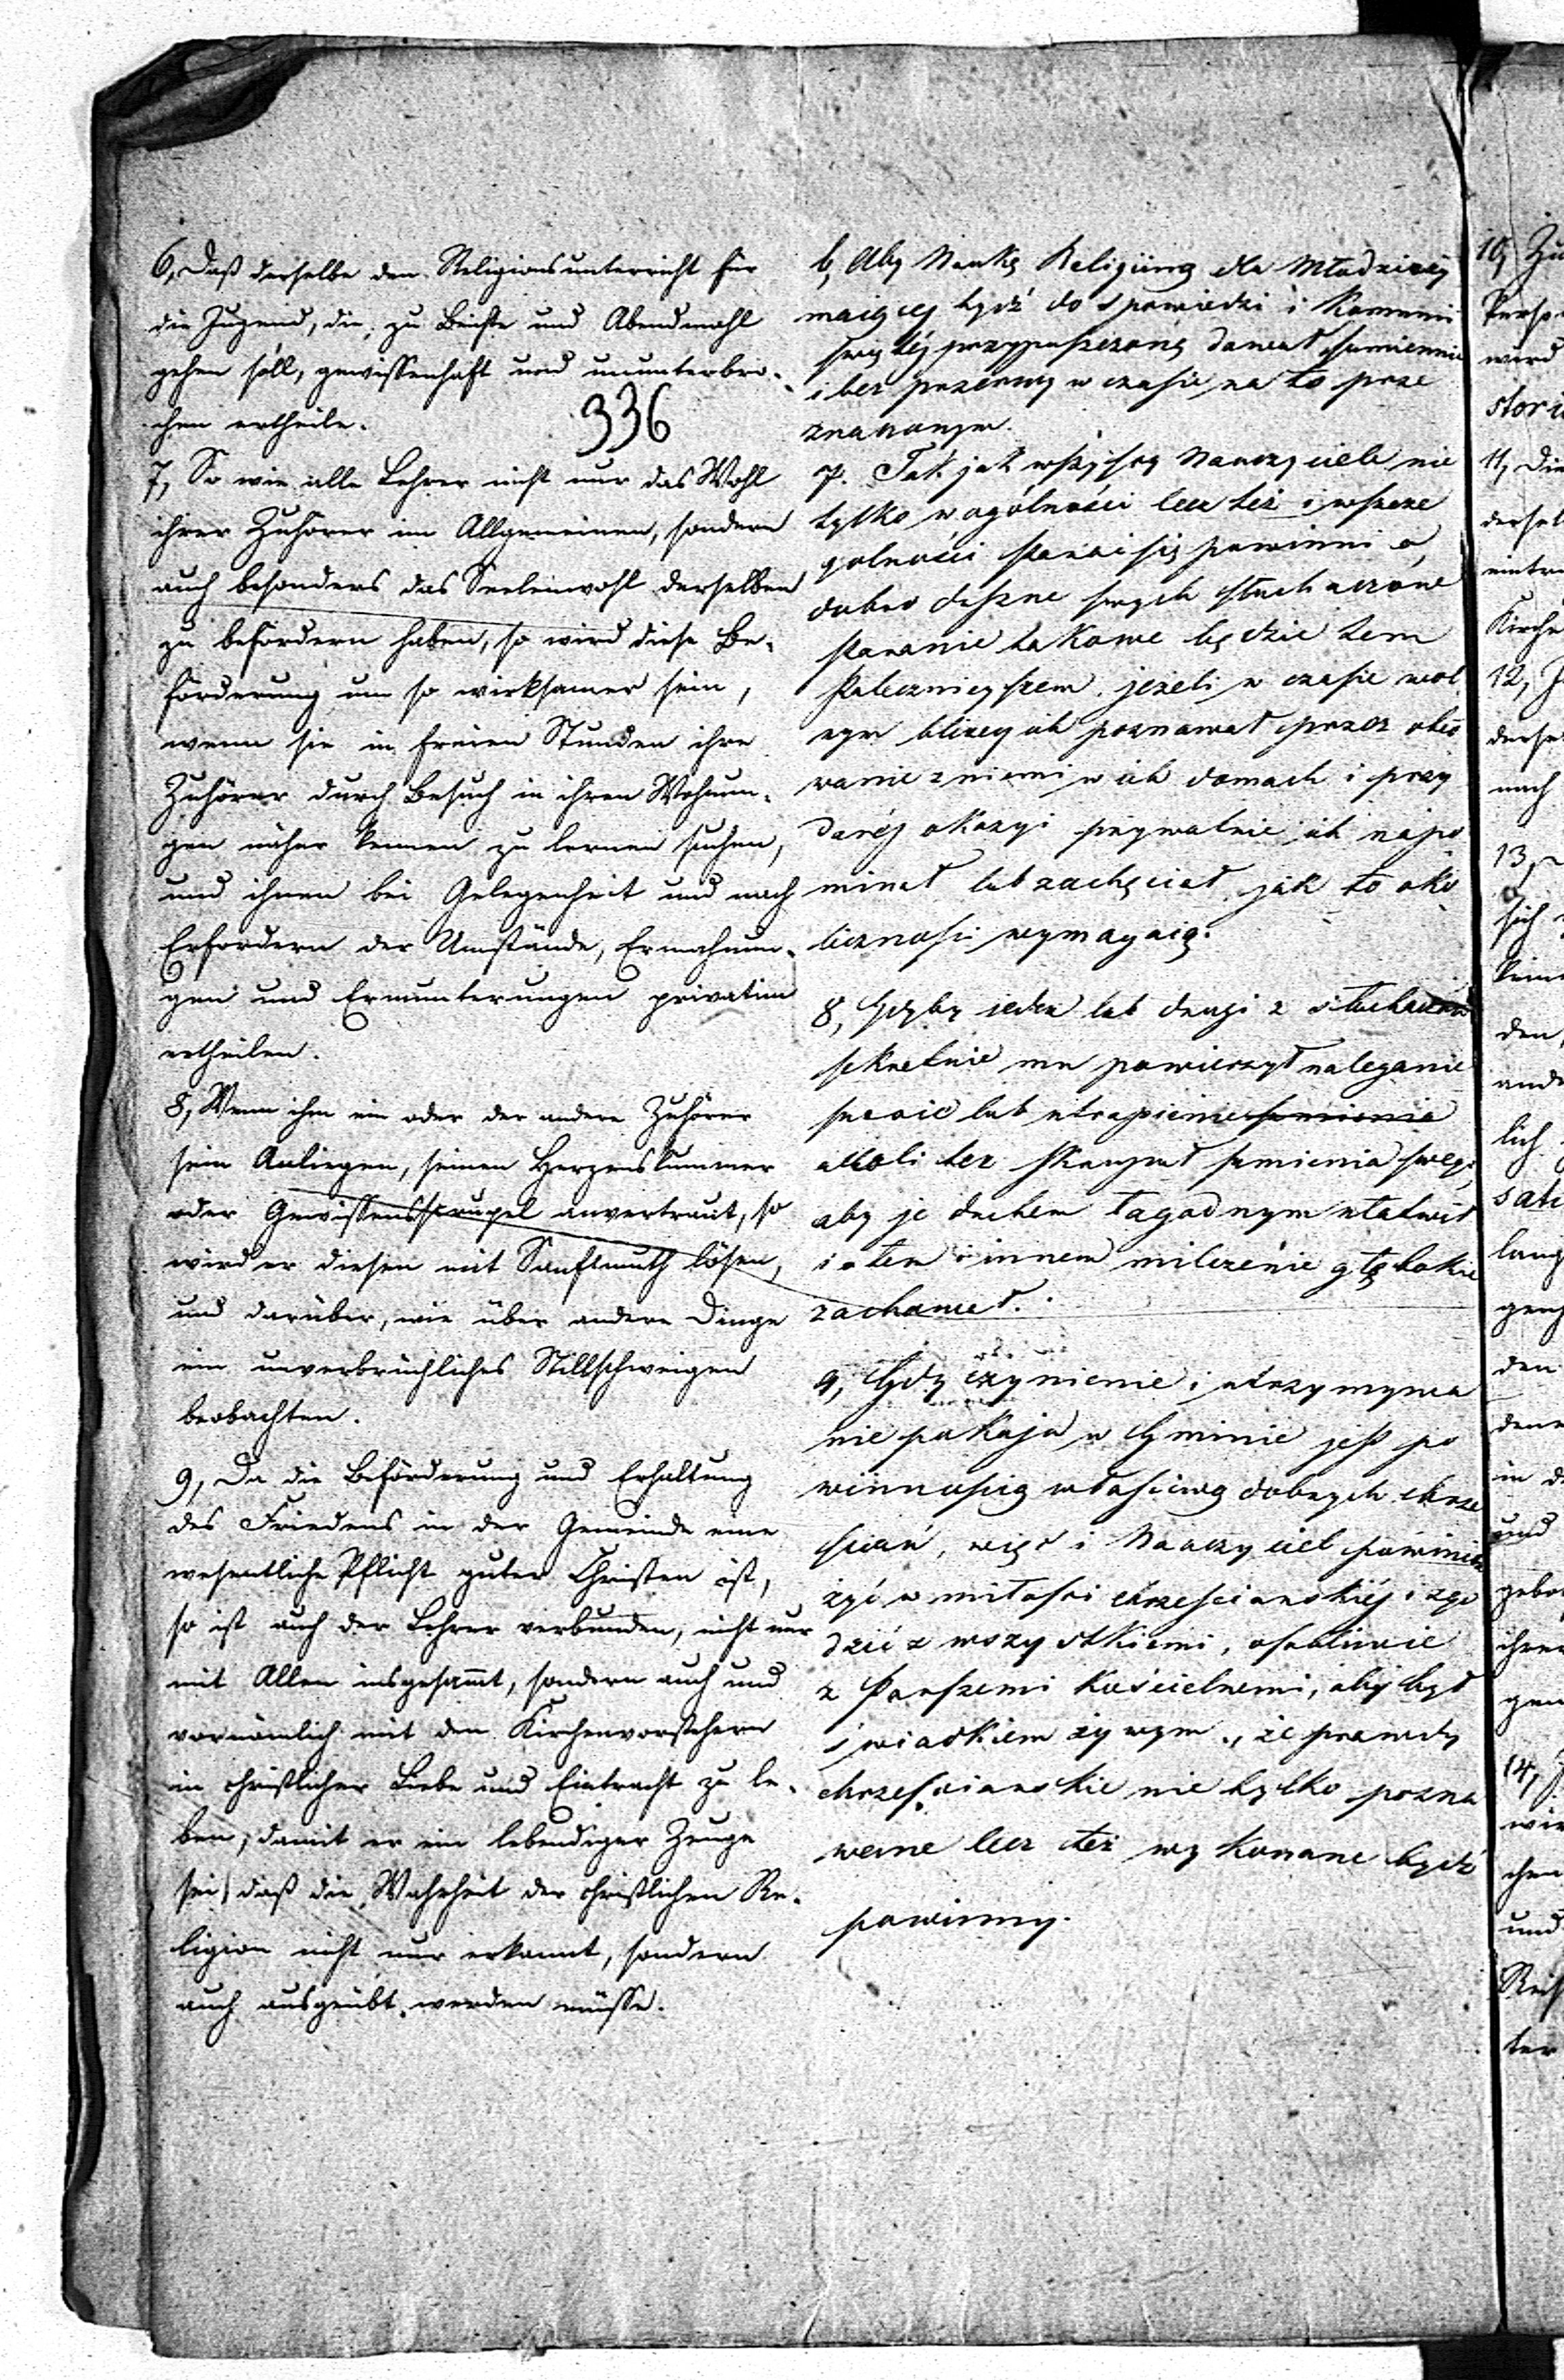 6, Daß derselbe den Religionsunterricht für
die Jugend, die zu Beichte und Abendmahl
gehen soll, gewissenhaft und ununterbro-
chen ertheile.
336
7, So wie alle Lehrer nicht nur das Wohl
ihrer Zuhörer im Allgemeinen, sondern
auch besonders das Seelenwohl derselben
zu befördern haben, so wird diese Be-
förderung um so wirksamer sein,
wenn sie in freien Stunden ihre
Zuhörer durch Besuch in ihren Wohnun-
gen näher kennen zu lernen suchen,
und ihnen bei Gelegenheit und nach
Erfordern der Umstände, Ermahnun-
gen und Ermunterungen privatim
ertheilen.
8, Wenn ihm ein oder der andere Zuhörer
sein Anliegen, seinen Herzenskummer
oder Gewissensscrupel anvertraut, so
wird er diesen mit Sanftmuth lösen,
und darüber, wie über andere Dinge
ein unverbrüchliches Stillschweigen
beobachten.
9, Da die Beförderung und Erhaltung
des Friedens in der Gemeinde eine
wesentliche Pflicht guter Christen ist,
so ist auch der Lehrer verbunden, nicht nur
mit Allen insgesammt, sondern auch und
vornämlich mit den Kirchenvorstehern
in christlicher Liebe und Eintracht zu le-
ben, damit er ein lebendiger Zeuge
sei, daß die Wahrheit der christlichen Re-
ligion nicht nur erkannt, sondern
auch ausgeübt werden müsse.
6, Aby Naukę Religijną dla Młodzieży
maiącey bydź do spowiedzi i Kommuni
świętéj przypuszczoną dawał sumiennie
i bez przerwy w czasie na to prze
znaczonym.
7. Tak jak wszyscy Nauczyciele nie
tylko w ogólności lecz też i w szcze
golności starać się powinni o
dobro duszne swych słuchaczów
staranie takowe będzie tem
skutecznieyszem, jeżeli w czasie wol
nym bliżey ich poznawał przez obco
wanie z niemi w ich domach i przy
daréj okazyi prywatnie ich napo
minał lub zachęciał, jak to oko
liczności wymagaią.
8, Gdyby jeden lub drugi z słuchaczów
sekretnie mu powierzył naleganie
swoie lub utrapienie sumienia
albo li też skrupuł sumienia swego,
aby je duchem łagodnym ułatwił
i o tem i innem milczenie głębokie
zachował.
9, Gdy czynienie i utrzymywa
nie pokoju w Gminie jest po
winnością właściwą dobrych chrze
ścian, więc i Nauczyciel powinien
żyć w miłości chrześcianskiéj i zgo
dzić z wszystkiemi, osobliwie
z Starszemi Kościelnemi, aby był
świadkiem żywym, że prawdy
chrześcianskie nie tylko pozna
wane lecz też wykonane bydź
powinny.
10, Zu
Person
wird
storiu
11, Die
dersel
eintre
Kirche
12, J
derse
nach
13,
sich
keine
den,
ande
lich
satz
lang
geng
den
dene
in d
und
gebo
ihrer
gen
14, J
wir
chen
und
Reis
ter